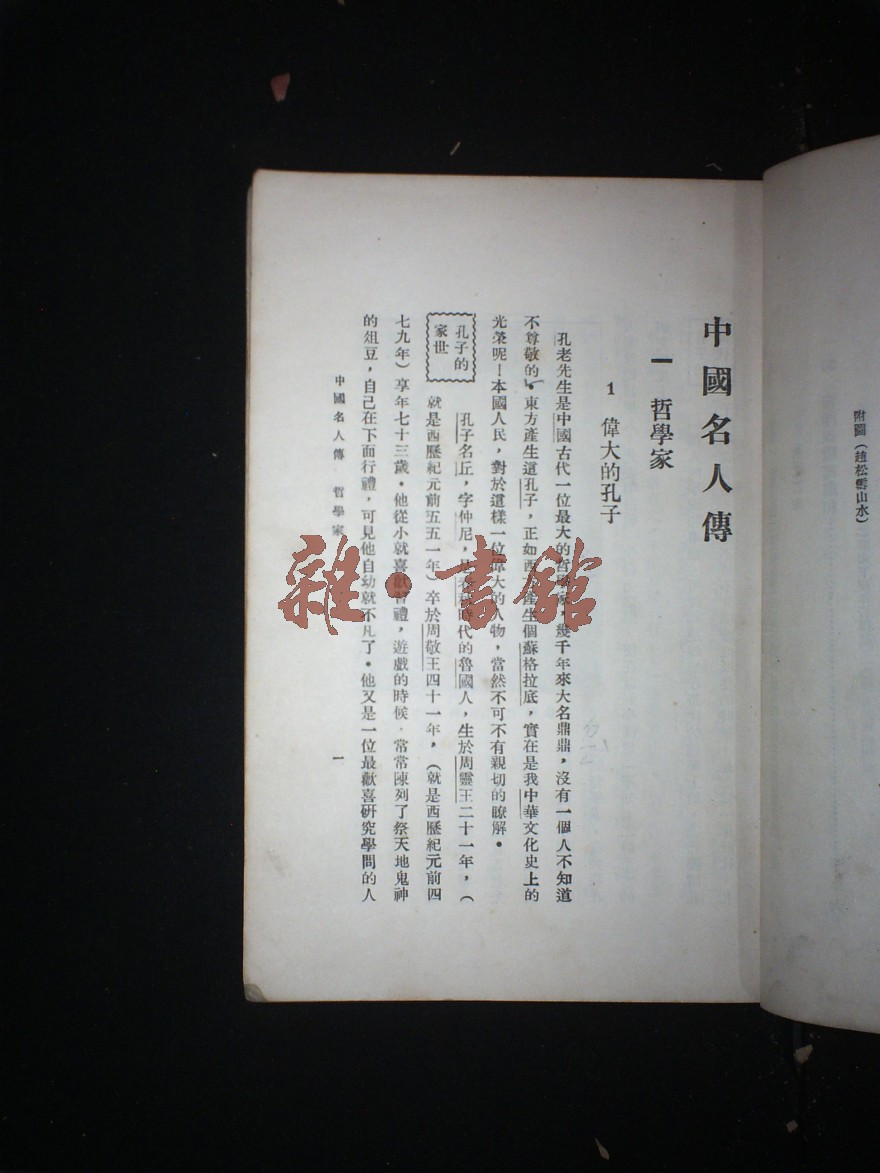 附圖（趙松雪山水）
中國名人傳
一 哲學家
1 偉大的孔子
孔老先生是中國古代一位最大的哲學家，幾千年來大名鼎鼎，沒有一個人不知道
不尊敬的。東方產生這孔子，正如西方產生個蘇格拉底，實在是我中華文化史上的
光榮呢！本國人民，對於這樣一位偉大的人物，當然不可不有親切的瞭解。
孔子的
家世
孔子名丘，字仲尼，是春秋時代的魯國人，生於周靈王二十一年，（
就是西歷紀元前五五一年）卒於周敬王四十一年，（就是西歷紀元前四
七九年）享年七十三歲。他從小就喜歡習禮，遊戲的時候，常常陳列了祭天地鬼神
的俎豆，自己在下面行禮，可見他自幼就不凡了。他又是一位最歡喜研究學問的人
中國名人傳 哲學家 一
雜·書館